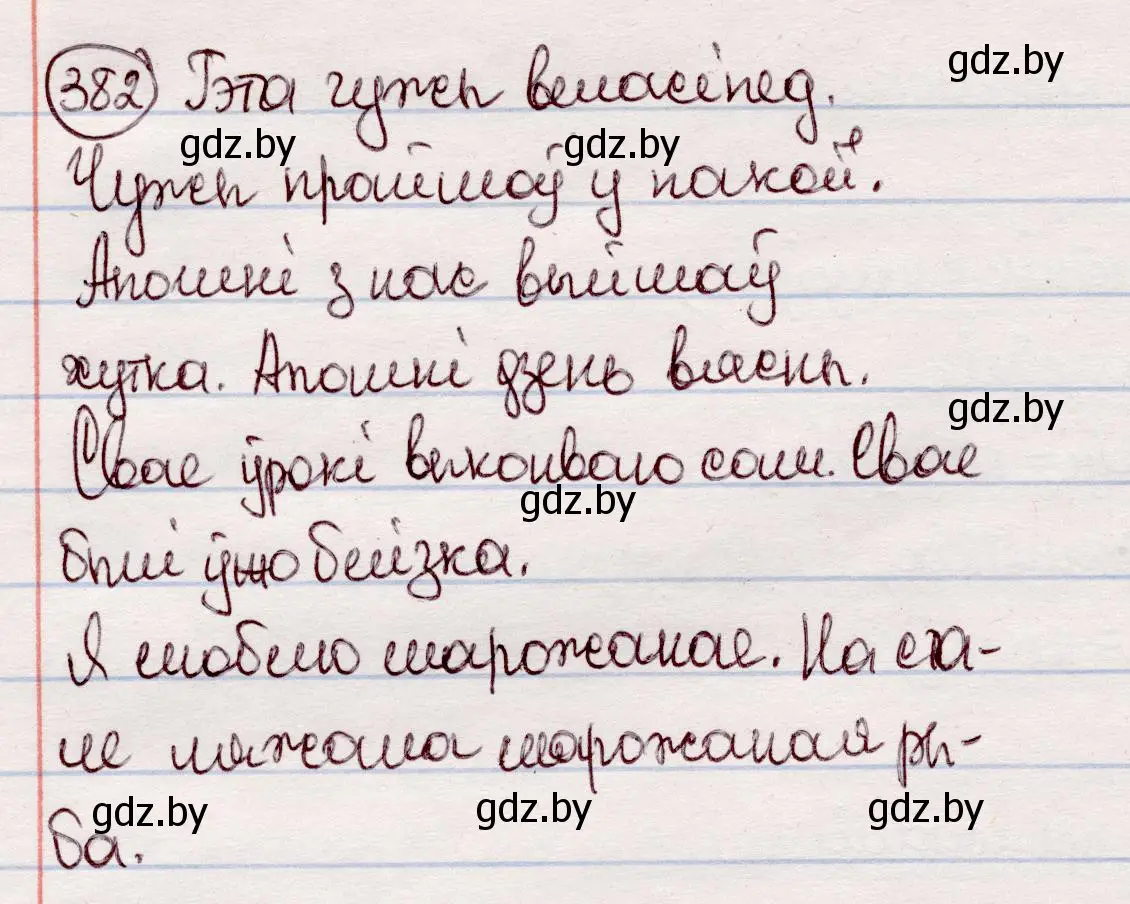 382 Гэта чужы веласіпед.
gdz.by
gdz.by gdz.by
Чужы прайшоў у пакой.
Апошні з нас выйшаў
хутка. Апошні дзень вясны.
gdz.by
Свае ўрокі выконваю сам. Свае
gdz.by
былі ўжо блізка.
Я люблю марожанае. На ста-
ле ляжала марожаная ры-
gdz.by gdz.by gdz.by
ба.